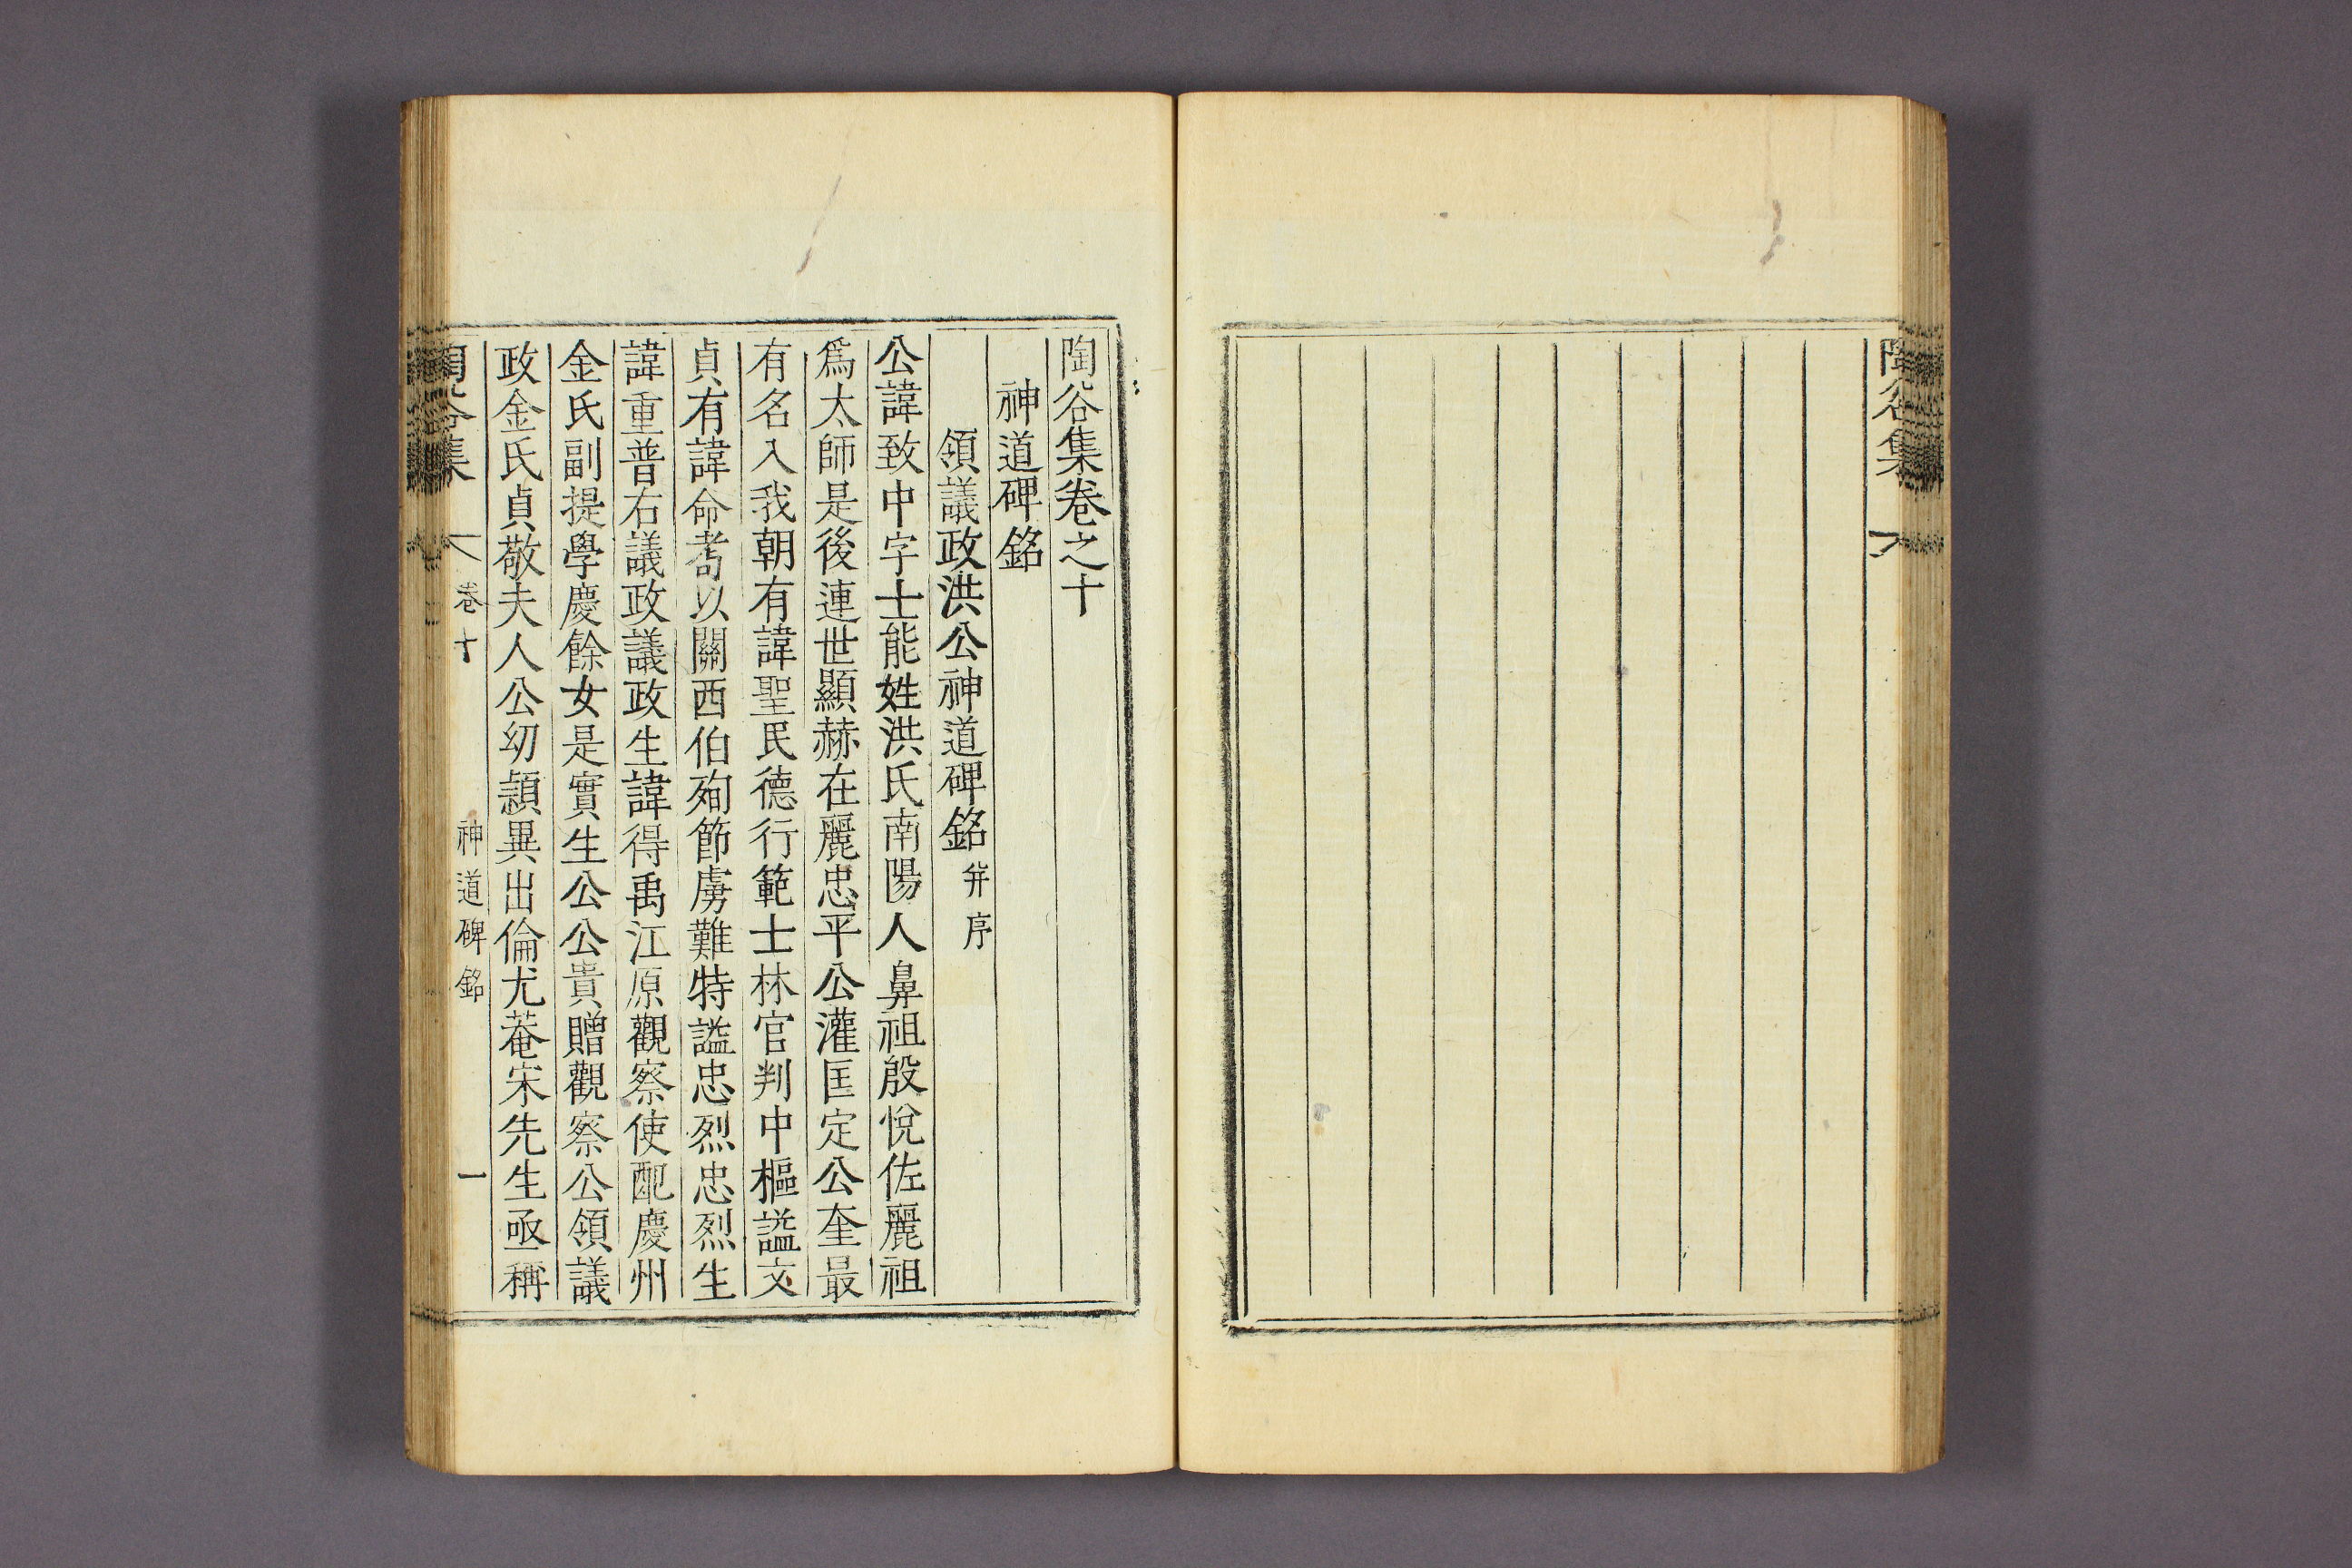 陶谷集
陶谷集卷之十
神道碑銘
領議政洪公神道碑銘 幷序
公諱致中字士能姓洪氏南陽人鼻祖殷悅佐麗祖
爲太師是後連世顯赫在麗忠平公灌匡定公奎最
有名入我朝有諱聖民德行範士林官判中樞謚文
貞有諱命耉以關西伯殉節虜難特謚忠烈忠烈生
諱重普右議政議政生諱得禹江原觀察使配慶州
金氏副提學慶餘女是實生公公貴贈觀察公領議
政金氏貞敬夫人公幼頴異出倫尤菴宋先生亟稱
陶谷集 卷十 神道碑銘 一